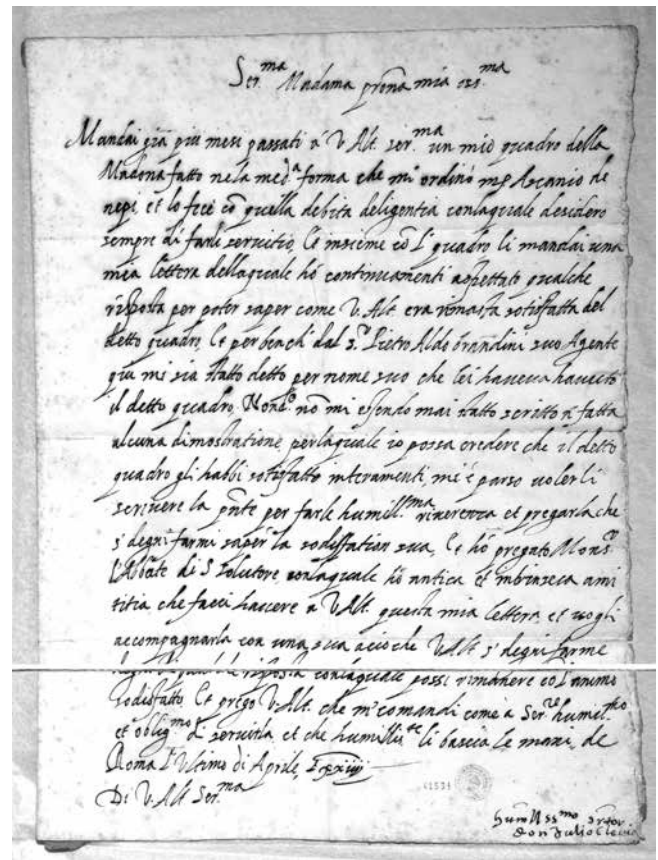 Ser.ma Madama prona mia oss.ma
Mandai già piu mesi passati à V. Alt. ser.ma un mio quadro della
Madona fatto nela med.a forma che mi ordinò ms Ascanio de
nepi, et lo feci cõ quella debita deligentia conlaquale desidero
sempre di farli servitio, Et insieme cõ l' quadro li mandai una
mia lettera dellaquale hò continuamenti aspettato qualche
risposta per poter saper come V. Alt. era rimasta sotisfatta del
detto quadro, Et per benchi dal s.r Pietro Aldobrandini suo Agente
qui mi sia statto detto per nome suo che lei haveva havuto
il detto quadro, nõ mi essendo mai statto scritto fatta
alcuna dimostratione perlaquale io possa credere che il detto
quadro gli habbi sotisfatto interamenti, mi è parso volerli
scrivere la pñte per farle humill.ma riverenza et pregarla che
s' degni farmi saper la sodisfation sua, Et hò pregato Mons.r
l'Abbate di S. Solutore conlaquale hò antica et intrinseca ami
titia che facci havere a V. Alt. questa mia lettera, et vogli
accompagnarla con una sua acio che V. Alt. s' degni farme
risposta conlaquale possi rimanere cõ l'animo
sodisfatto, Et prego V. Alt. che m' comandi come a Ser.re humil.mo
et oblig.mo d' servirla, et che humillis.te li bascio le mani, de
Roma l'Ultimo di Aprile
Di V. Alt. Ser.ma
humilss.mo
Don Julio Clovio